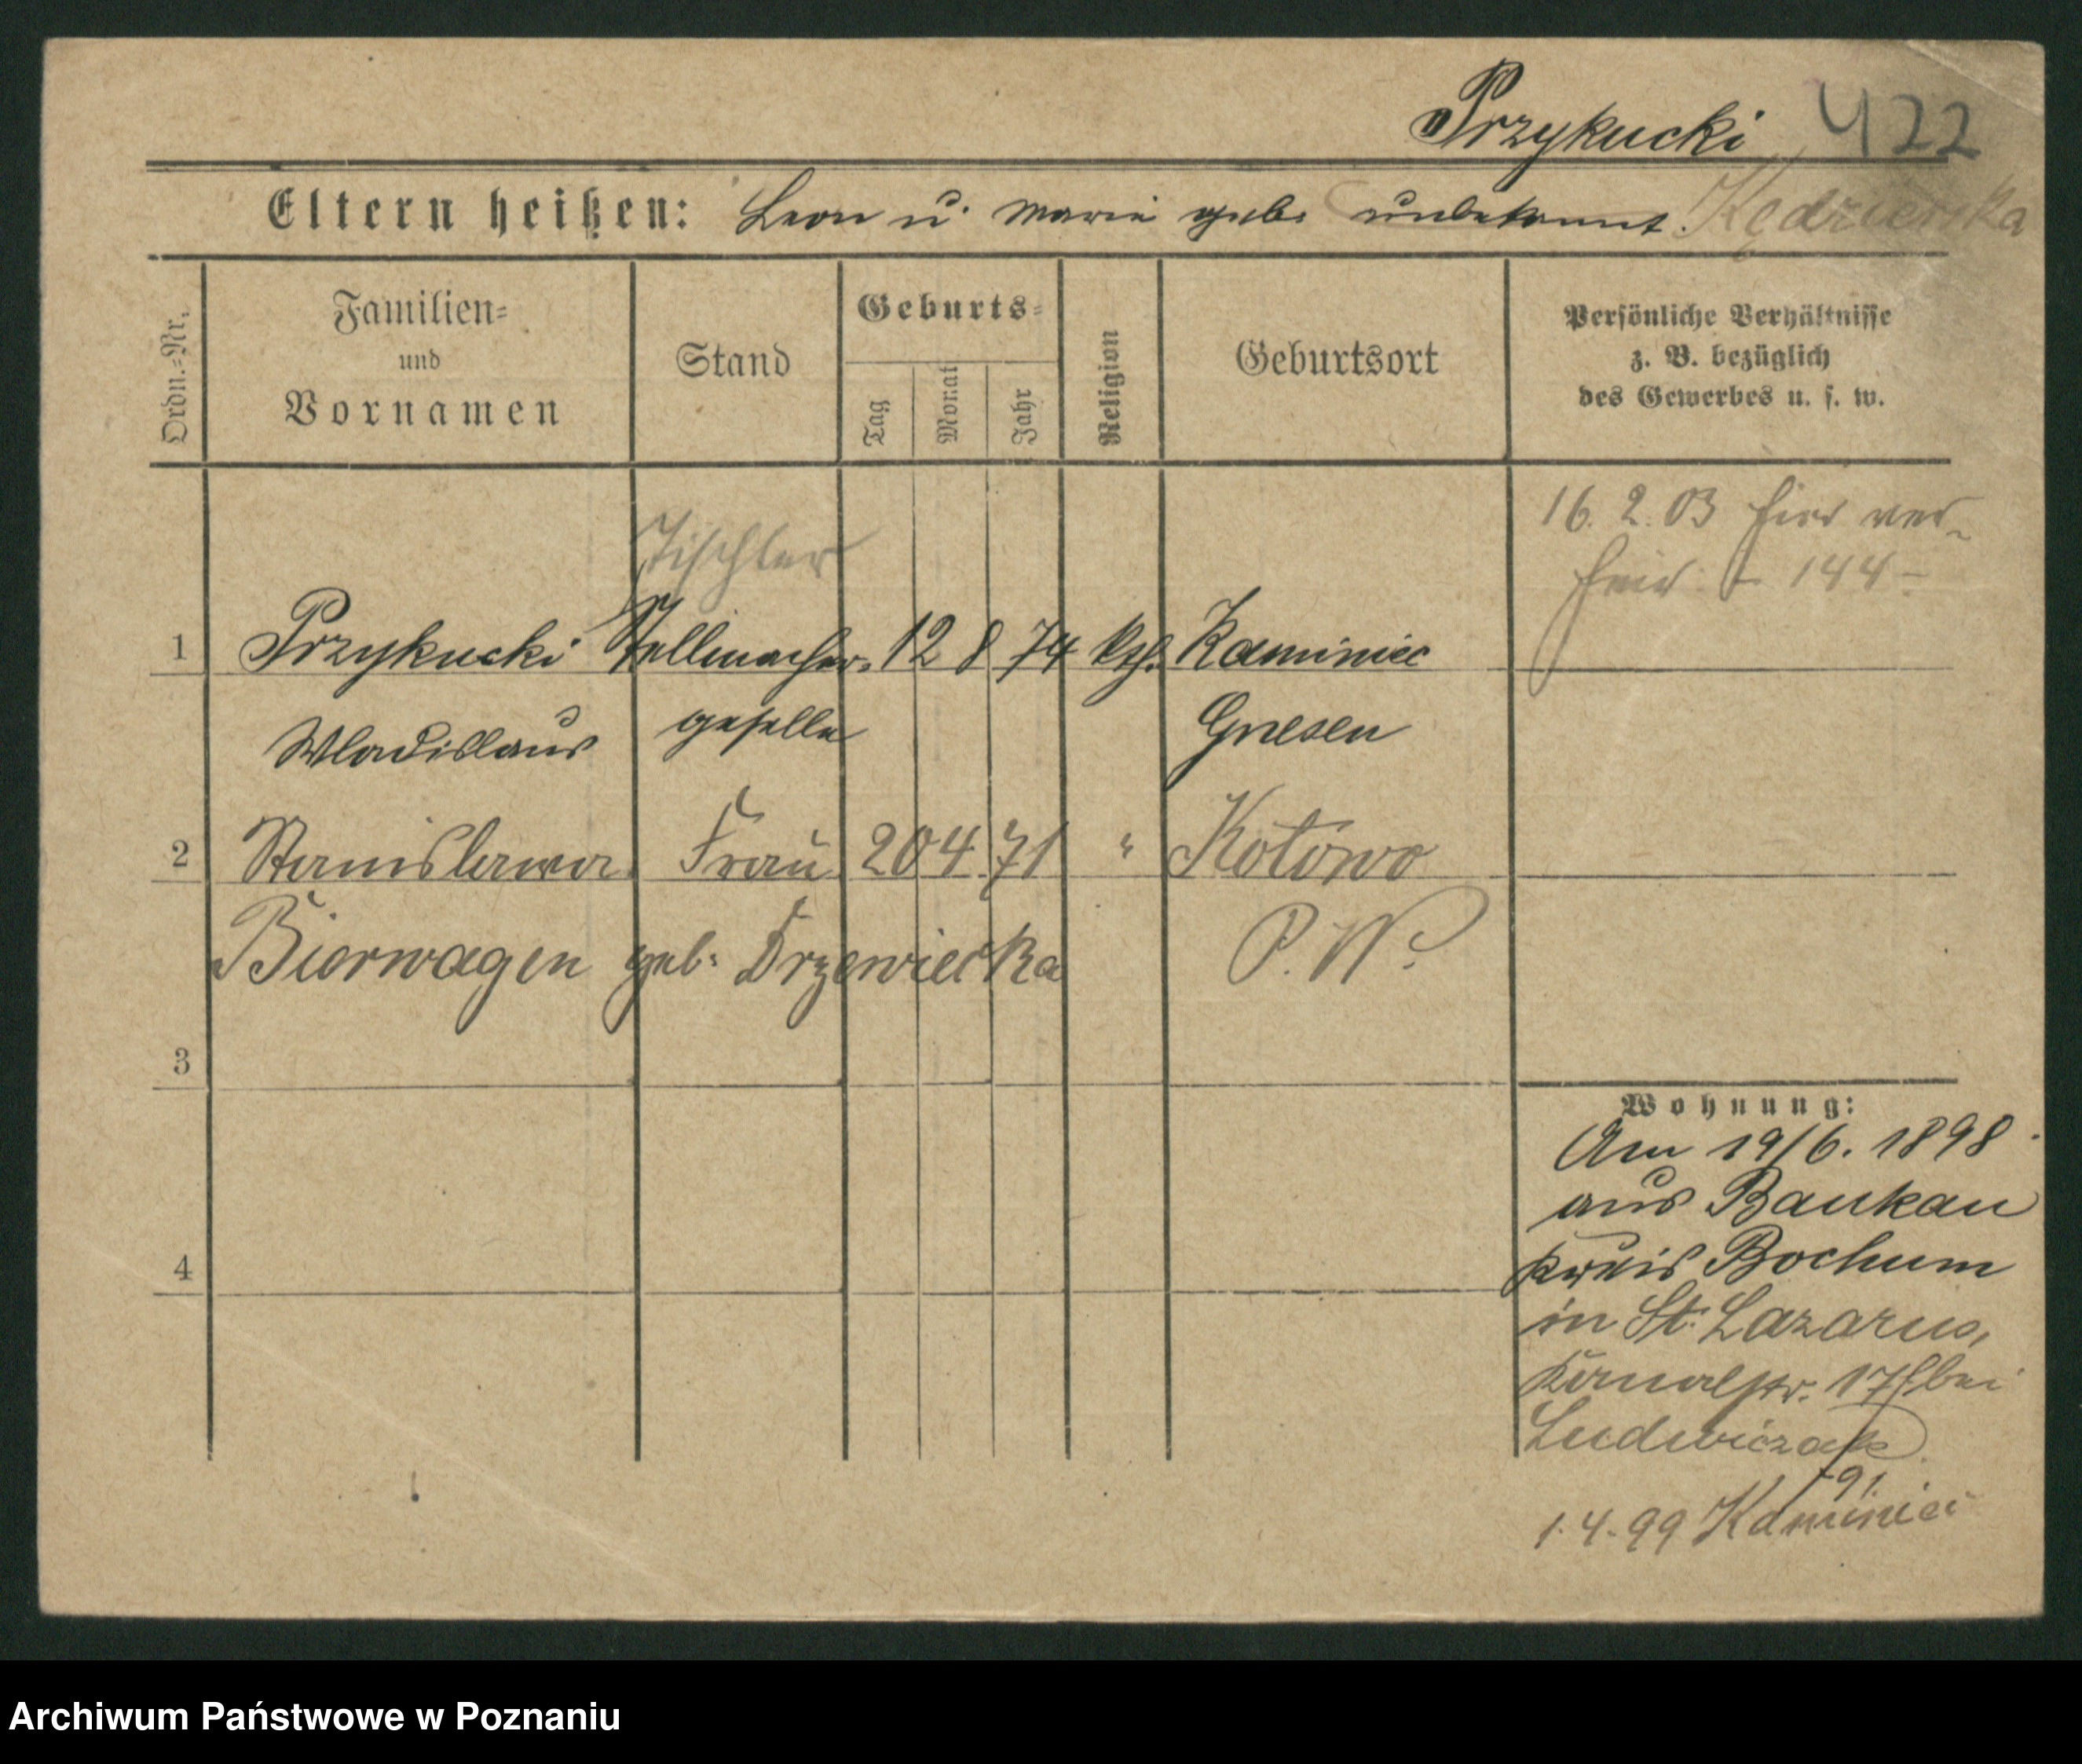 Przykucki 422
Eltern heißen: Leon u. Marie geb. unbekannt.
Ordn.-Nr.
Familien-
und
Vornamen
Stand
Geburts-
Tag
Monat
Jahr
Religion
Geburtsort
Persönliche Verhältnisse
z. B. bezüglich
des Gewerbes u. s. w.
16. 2. 03 hier ver-
heir. 144
Tischler
1 Przykucki Stellmacher- 12 8 74 kth. Kaminiec
Wladislaus geselle Gnesen
2 Stanislawa Frau 20 4 71 " Kotowo
Bierwagen geb. Drzewiecka P. W.
3
Wohnung:
Am 19/6. 1898
aus Baukau
Kreis Bochum
4
in St. Lazarus,
Kanalstr. 17 bei
Ludwiczak
1.4.99 Kaminiec
Archiwum Państwowe w Poznaniu